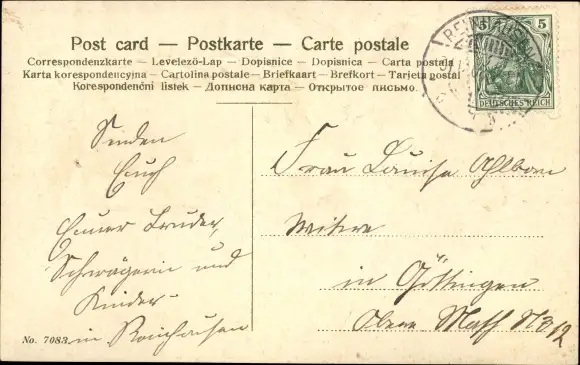 Post card — Postkarte — Carte postale
Correspondenzkarte — Levelező-Lap — Dopisnice — Dopisnica — Carta postala
Karta korespondencyjna — Cartolina postale — Briefkaart — Brefkort — Tarjeta postal
Korespondenční lístek — Дописна карта — Открытое письмо.
5 5
DEUTSCHES REICH
Senden
Euch
Euer Bruder,
Schwägerin und
Kinder
in Reinhausen
No. 7083
Frau Louise Ahlborn
Witwe
in Göttingen
Obere No 12